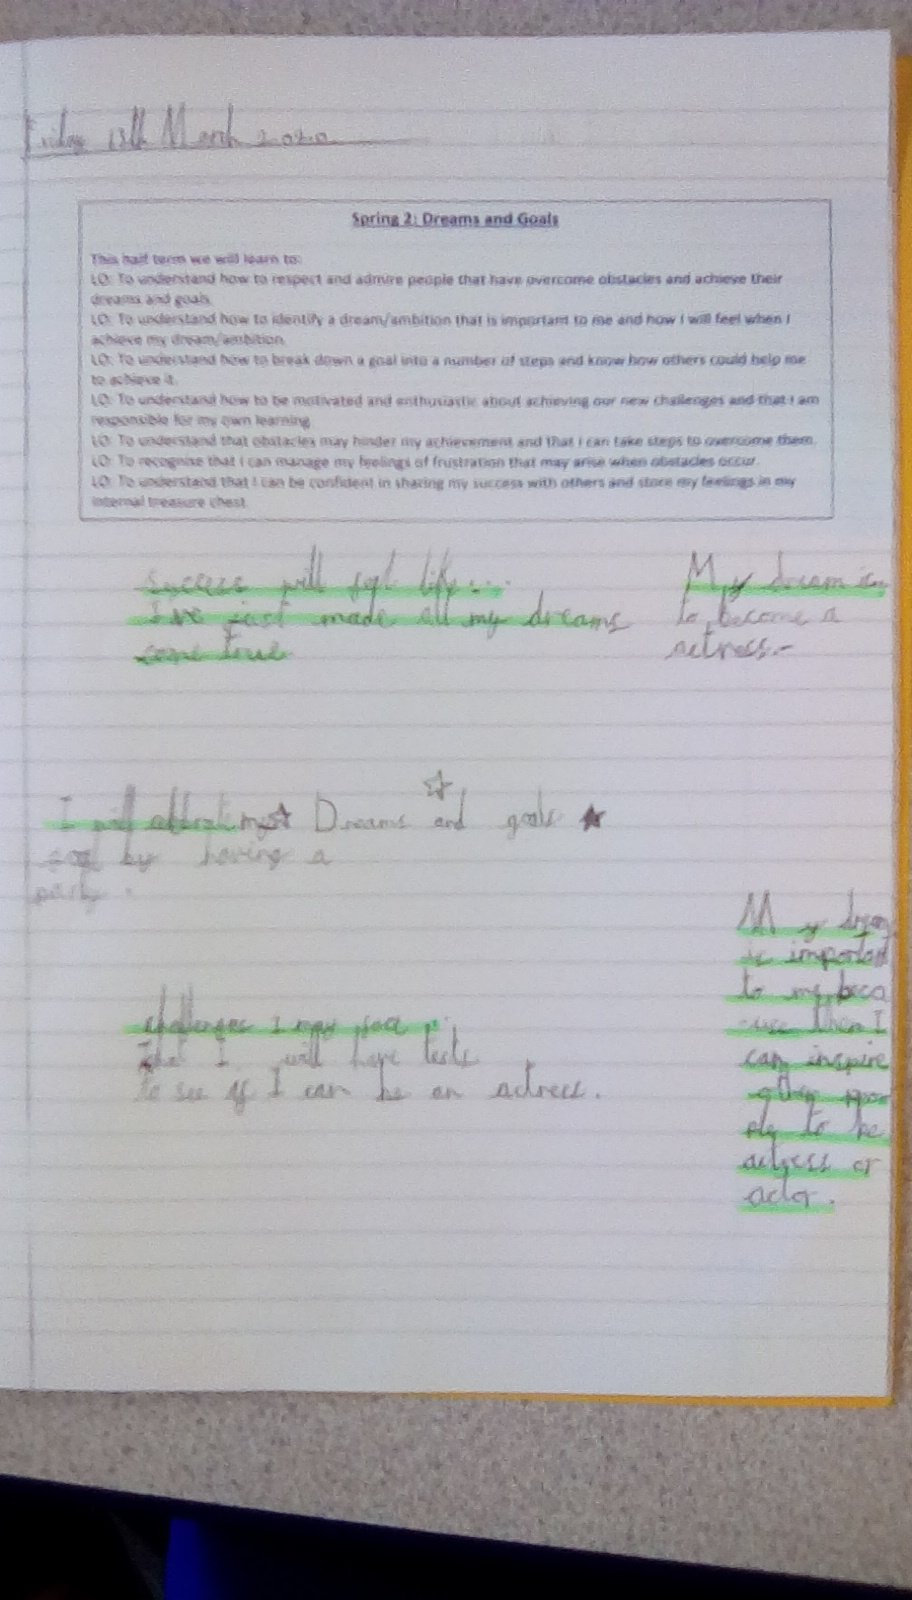 Friday 13th March 2020
Spring 2: Dreams and Goals
This half term we will learn to:
LO: To understand how to respect and admire people that have overcome obstacles and achieve their
dreams and goals.
LO: To understand how to identify a dream/ambition that is important to me and how I will feel when I
achieve my dream/ambition.
LO: To understand how to break down a goal into a number of steps and know how others could help me
to achieve it.
LO: To understand how to be motivated and enthusiastic about achieving our new challenges and that I am
responsible for my own learning.
LO: To understand that obstacles may hinder my achievement and that I can take steps to overcome them.
LO: To recognise that I can manage my feelings of frustration that may arise when obstacles occur.
LO: To understand that I can be confident in sharing my success with others and store my feelings in my
internal treasure chest.
Success will feel like...
I've just made all my dreams
come true
My dream is
to become a
actress.
I will my
by having a
party.
Dreams and goals
challenges I may face
I will have tests
to see if I can be an actress.
My dream
is important
to my beca
use then I
can inspire
other peo
ple to be
actress or
actor.